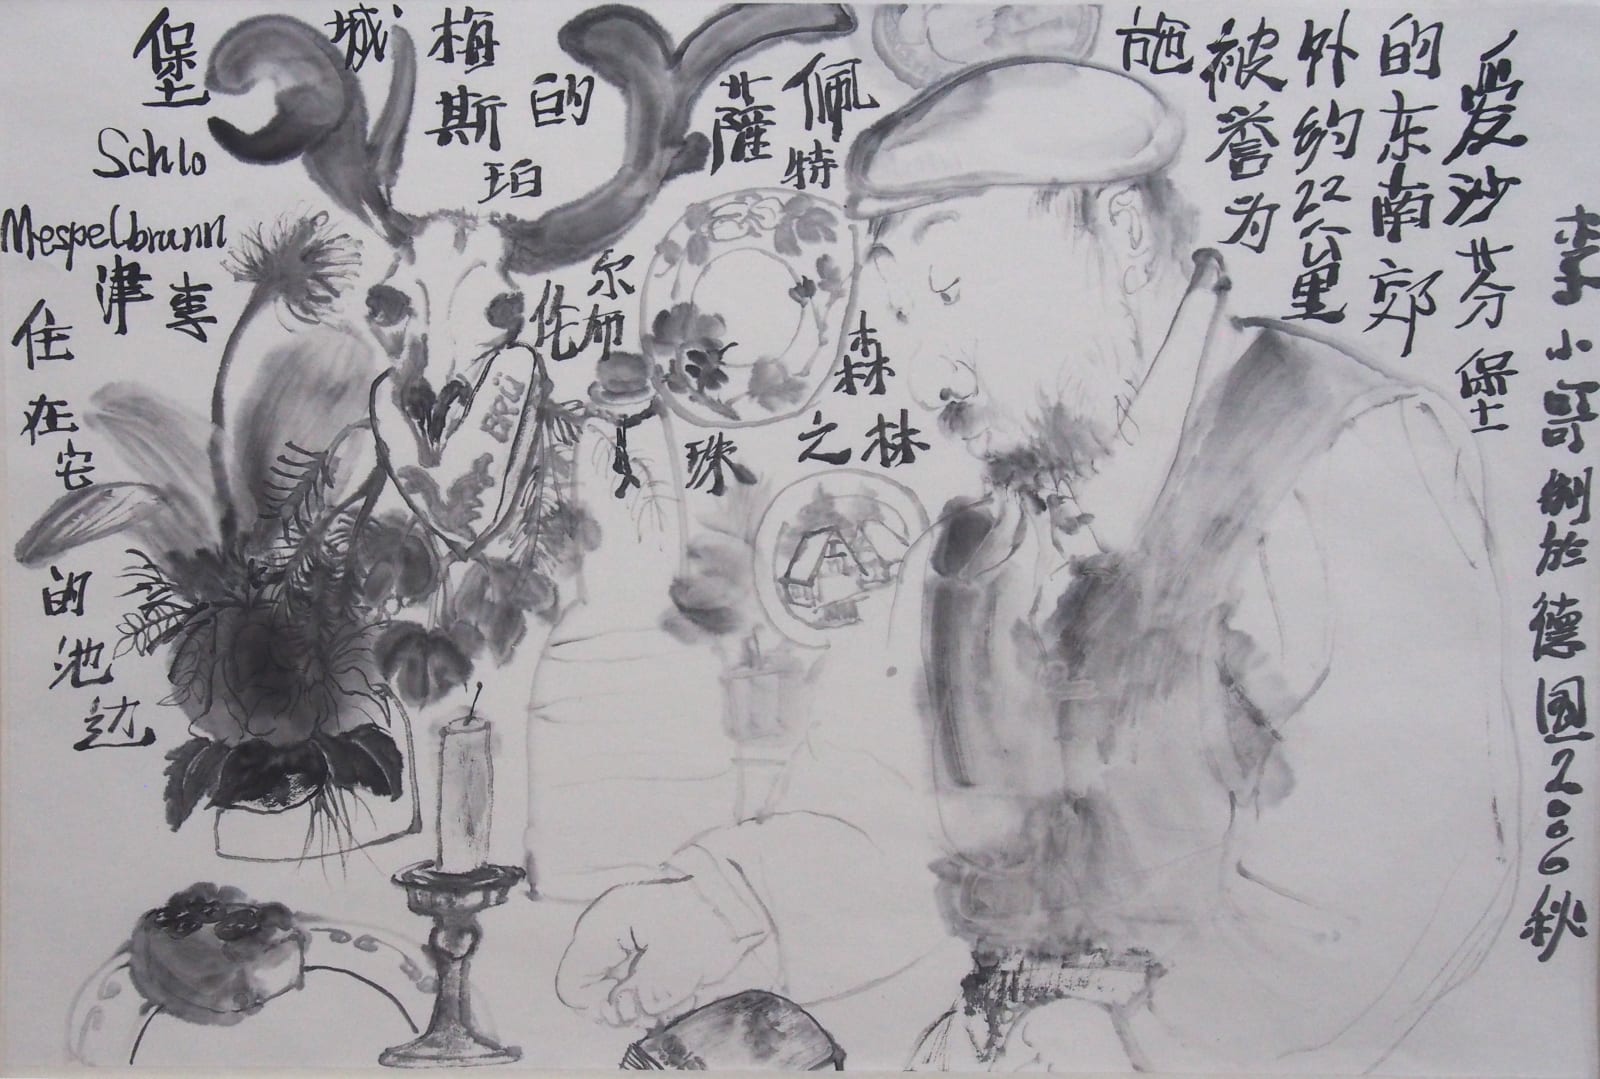 爱沙芬堡
的东南郊
外约22公里
被誉为
施
佩特
薩
森林
之
珠
的
梅斯
珀
尔布
伦
城
堡
Schlo
Mespelbrunn
李
津
住在它的池边
李小哥制於德国2006秋
EPÜ